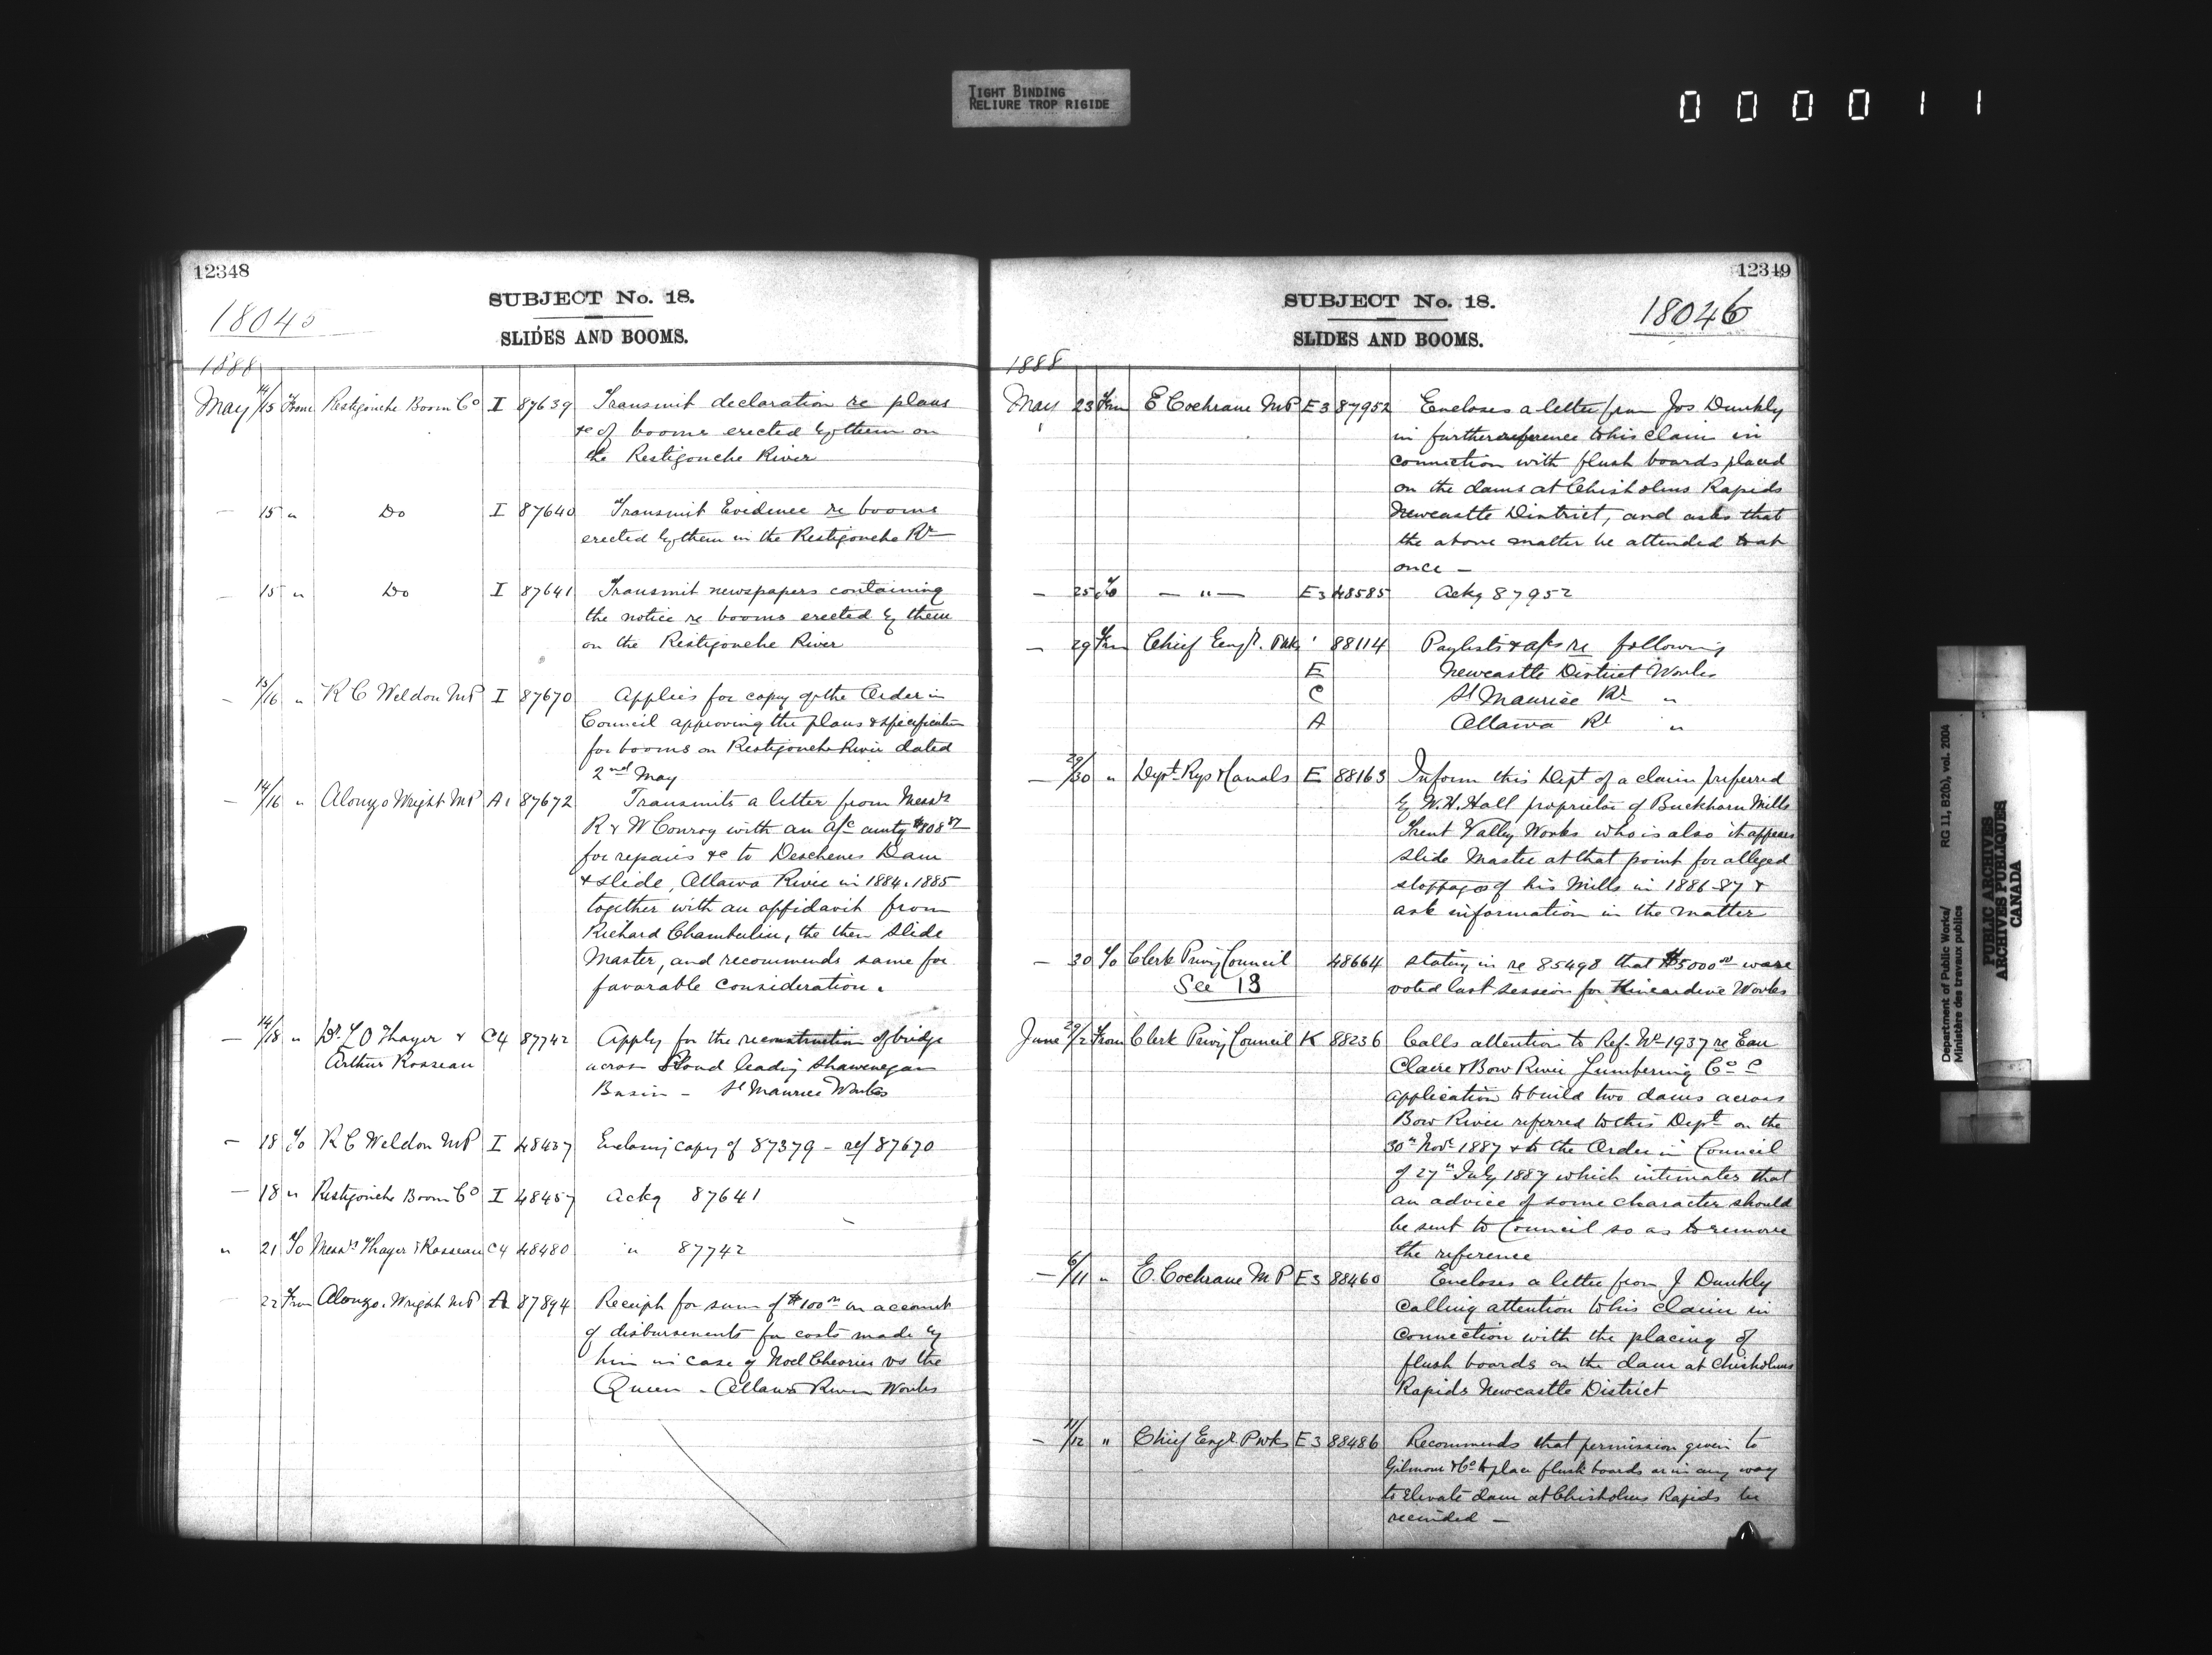 TIGHT BINDING
RELIURE TROP RIGIDE
000011
12348
SUBJECT No. 18.
18045
SLIDES AND BOOMS.
1888
May 14/15 From Restigouche Boom Co I 87639 Transmit declaration re plans
&c of booms erected by them on
the Restigouche River
— 15 " Do I 87640 Transmit Evidence re booms
erected by them in the Restigouche Rr
— 15 " Do I 87641 Transmit newspapers containing
the notice re booms erected by them
on the Restigouche River
— 15/16 " R C Weldon MP I 87670 Applies for copy of the Order in
Council approving the plans & specification
for booms on Restigouche River dated
2nd May
— 14/16 " Alonzo Wright MP A1 87672 Transmits a letter from Messrs
R & W Conroy with an a/c amtg $808
for repairs &c to Deschenes Dam
& slide, Ottawa River in 1884. 1885
together with an affidavit from
Richard Chamberlin, the then Slide
Master, and recommends same for
favorable consideration.
— 14/18 " Dr L O Thayer & C4 87742 Apply for the reconstruction of bridge
Arthur Rosseau across road leading Shawenegan
Basin — St Maurice Works
— 18 To R C Weldon MP I 48437 Enclosing copy of 87379 — ref 87670
— 18 " Restigouche Boom Co I 48457 Ackg 87641
" 21 To Messrs Thayer & Rosseau C4 48480 " 87742
22 From Alonzo Wright MP A 87894 Receipt for sum of $100 on account
of disbursements for costs made by
him in case of Noel Cheorier vs the
Queen — Ottawa River Works
12349
SUBJECT No. 18.
18046
SLIDES AND BOOMS.
1888
May 23 From E Cochrane MP E3 87952 Encloses a letter from Jos Dunkly
in further reference to his claim in
connection with flush boards placed
on the dams at Chisholms Rapids
Newcastle District, and asks that
the above matter be attended to at
once —
— 25 To — " — E3 48585 Ackg 87952
— 29 From Chief Engr. PWks 88114 Paylists & a/cs re following
E Newcastle District Works
C St Maurice Rr "
A Ottawa Rr "
— 29/30 " Dept Rys & Canals E 88163 Inform this Dept of a claim preferred
by W.H. Hall proprietor of Buckhorn Mills
Trent Vally Works who is also it appears
slide Master at that point for alleged
stoppages of his Mills in 1886-87 &
ask information in the matter
— 30 To Clerk Privy Council 48664 Stating in re 85498 that $5000 were
See 13 voted last session for Kincardine Works
June 29/2 From Clerk Privy Council K 88236 Calls attention to Ref. No 1937 re Eau
Claire & Bow River Lumbering Co
application to build two dams across
Bow River referred to this Dept on the
30th Novr 1887 & to the Order in Council
of 27th July 1887 which intimates that
an advice of some character should
be sent to Council so as to remove
the reference
— 6/11 " E. Cochrane MP E3 88460 Encloses a letter from J Dunkly
calling attention to his claim in
connection with the placing of
flush boards on the dam at Chisholms
Rapids Newcastle District
— 11/12 " Chief Engr. PWks E3 88486 Recommends that permission given to
Gilmour & Co to place flush boards or in any way
to elevate dam at Chisholms Rapids be
recinded —
Department of Public Works/ RG 11, B2(b), vol. 2004
Ministère des travaux publics
PUBLIC ARCHIVES
ARCHIVES PUBLIQUES
CANADA